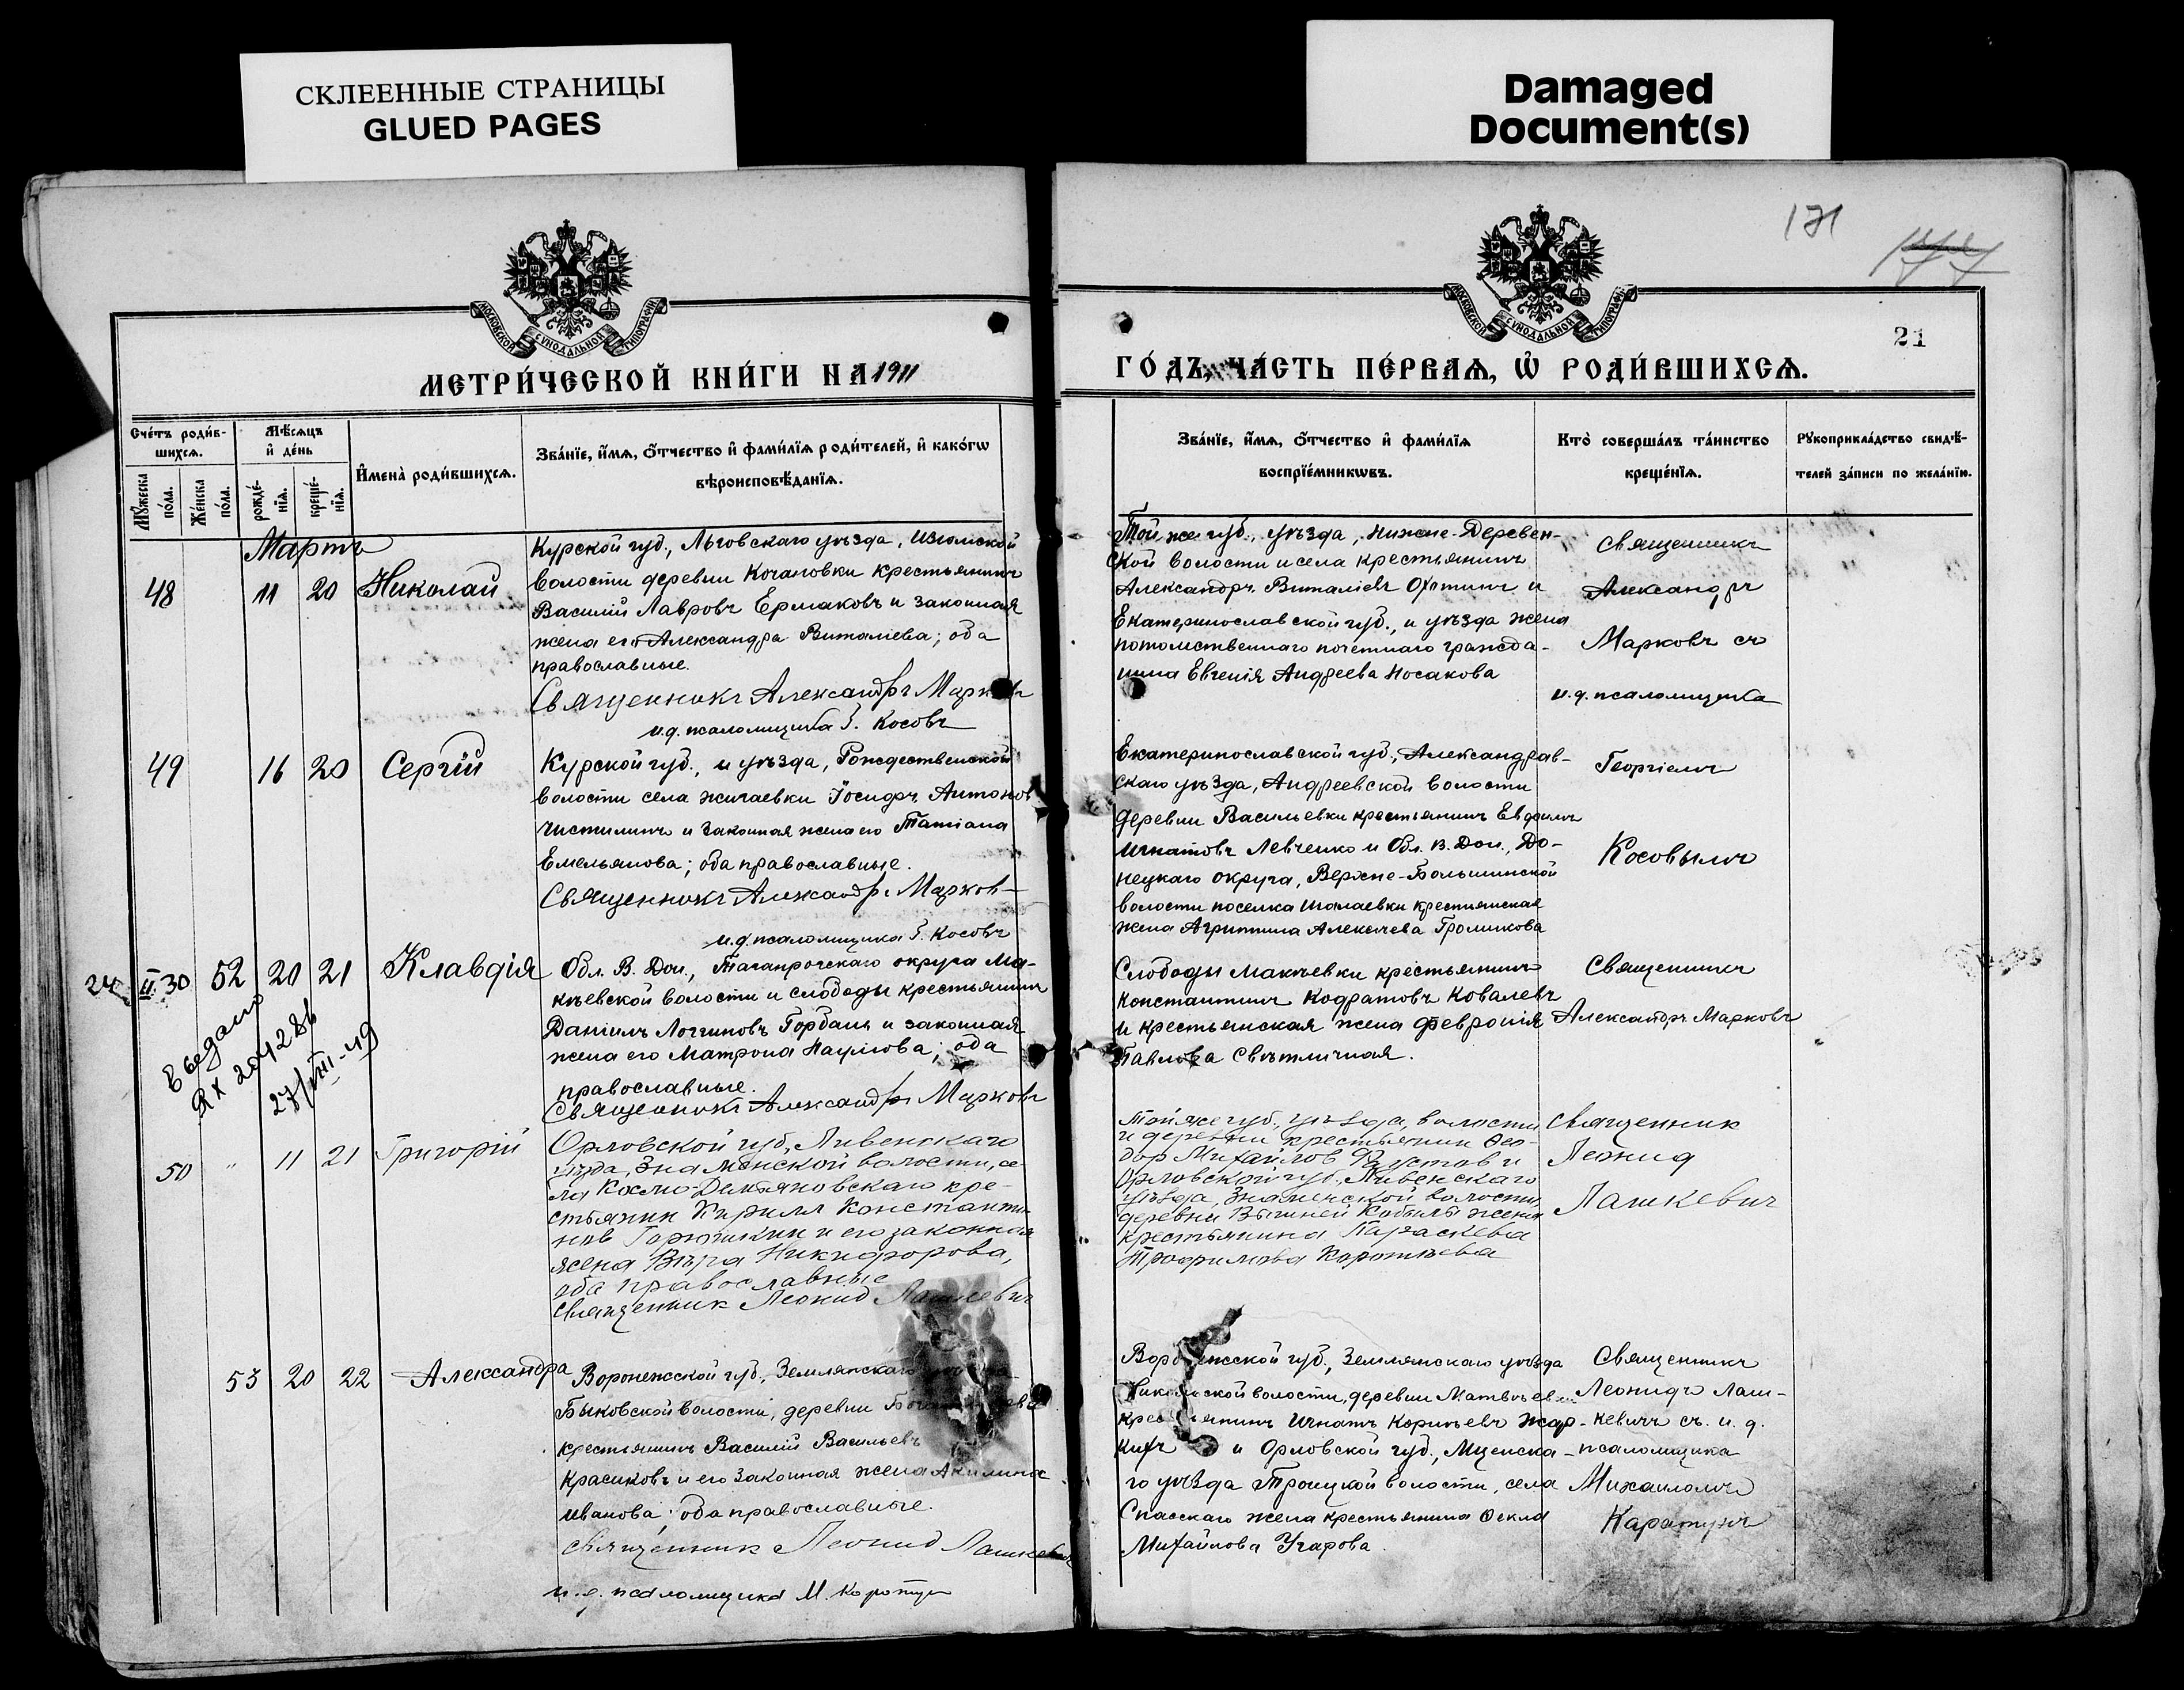 СКЛЕЕННЫЕ СТРАНИЦЫ
GLUED PAGES
Damaged
Document(s)
171
177
21
МОСКОВСКОЙ СУНОДАЛЬНОЙ ТИПОГРАФІИ
МОСКОВСКОЙ СУНОДАЛЬНОЙ ТИПОГРАФІИ
МЕТРИ́ЧЕСКОЙ КНИ́ГИ НА 1911
ГО́ДЪ, ЧА́СТЬ ПЕ́РВАѦ, Ѡ҆ РОДИ́ВШИХСѦ.
Сче́тъ роди́в-
шихсѧ.
Мꙋ́жеска
по́ла.
Же́нска
по́ла.
Мѣ́сѧцъ
и҆ де́нь
рожде́-
нїѧ.
креще́-
нїѧ.
И҆мена̀ роди́вшихсѧ.
Зва́нїе, и҆́мѧ, ѻ҆́тчество и҆ фами́лїѧ роди́телей, и҆ како́гѡ
вѣроисповѣ́данїѧ.
Зва́нїе, и҆́мѧ, ѻ҆́тчество и҆ фами́лїѧ
воспрїе́мникѡвъ.
Кто̀ соверша́лъ та́инство
креще́нїѧ.
Рꙋкоприкла́дство свидѣ́-
телей за́писи по жела́нїю.
Мартъ
48 11 20 Николай
Курской губ., Льговскаго уѣзда,
волости деревни Кочановки крестьянинъ
Василій Лавровъ Ермаковъ и законная
жена его Александра Виталіева; оба
православные.
Священникъ Александръ Марковъ
и.д. псаломщика Г. Косовъ
Той же губ., уѣзда, Нижне-Деревен-
ской волости и села крестьянинъ
Александръ Виталіевъ Охотинъ и
Екатеринославской губ., и уѣзда жена
потомственнаго почетнаго гражда-
нина Евгенія Андреева Носакова
Священникъ
Александръ
Марковъ съ
и.д. псаломщика
49 16 20 Сергій
Курской губ., и уѣзда, Рождественской
волости села Жигаевки Іосифъ Антоновъ
Чистилинъ и законная жена его Татіана
Емельянова; оба православные.
Священникъ Александръ Марковъ
и.д. псаломщика Г. Косовъ
Екатеринославской губ., Александров-
скаго уѣзда, Андреевской волости
деревни Васильевки крестьянинъ Евфимъ
Игнатовъ Левченко и Обл. В. Дон., До-
нецкаго округа, Верхне-Большинской
волости поселка Шалаевки крестьянская
жена Агриппина Алексѣева Громикова
Георгіемъ
Косовымъ
24 II 30 52 20 21 Клавдія
Выдано
ЯХ 204286
27/VIII-49
Обл. В. Дон., Таганрогскаго округа Ма-
кѣевской волости и слободы крестьянинъ
Даніилъ Логгиновъ Горбань и законная
жена его Матрона Наумова; оба
православные.
Священникъ Александръ Марковъ
Слободы Макѣевки крестьянинъ
Константинъ Кодратовъ Ковалевъ
и крестьянская жена Февронія
Павлова Свѣтличная.
Священникъ
Александръ Марковъ
50 " 11 21 Григорій
Орловской губ., Ливенскаго
уѣзда, Знаменской волости, се-
ла Космо-Демьяновскаго кре-
стьянин Кирилл Константи-
нов Горюшкин и его законная
жена Вѣра Никифорова,
оба православные
Священник Леонид Лашкевич
Той же губ., уѣзда, волости
и деревни крестьянин Фео-
дор Михайлов Фаустов и
Орловской губ., Ливенскаго
уѣзда, Знаменской волости,
деревни Вышней Кобылы жена
крестьянина Параскева
Трофимова Коротѣева
Священник
Леонид
Лашкевич
53 20 22 Александра
Воронежской губ., Землянскаго
Быковской волости, деревни
крестьянинъ Василій Васильевъ
Красиковъ и его законная жена Акилина
Иванова; оба православные.
Священник Леонид Лашкевич
и.д. псаломщика М. Коротун
Воронежской губ., Землянскаго уѣзда
Никольской волости, деревни Матвѣев
крестьянинъ Игнатъ Корнѣевъ Жар-
кихъ и Орловской губ., Мценска-
го уѣзда Троицкой волости, села
Спасскаго жена крестьянина Фекла
Михайлова Угарова.
Священникъ
Леонидъ Лаш-
кевичъ съ и.д.
псаломщика
Михаиломъ
Каратунъ